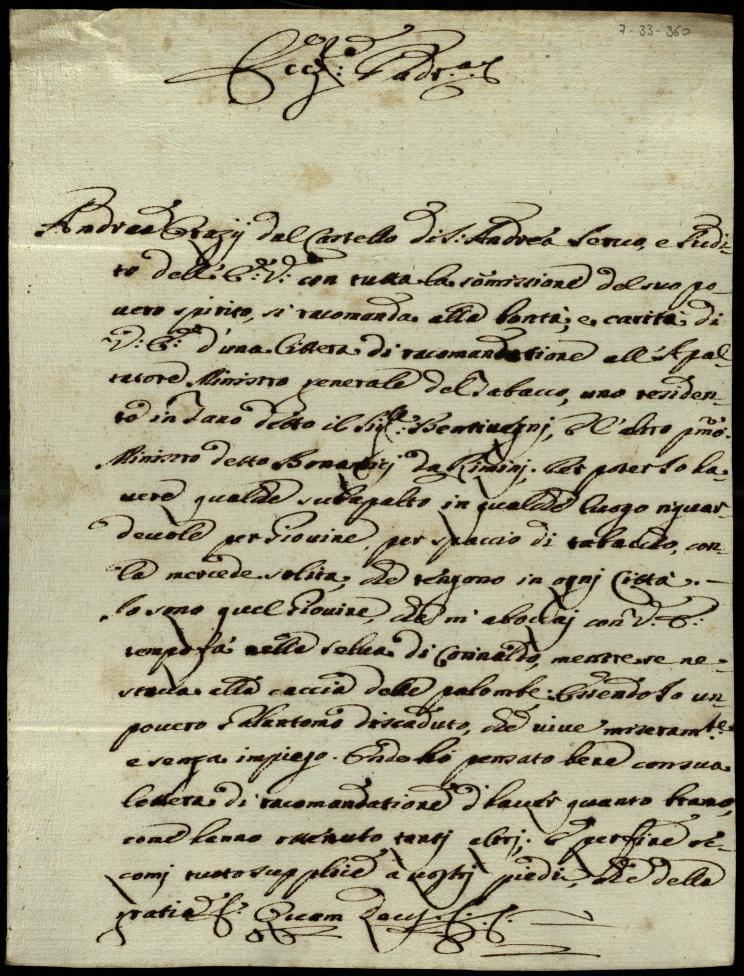 7-33-360
Ecc:mo Padr:e
Andrea Grazij dal Castello di S: Andrea Servo, e Sudi-
to dell'E: V: con tutta la somissione del suo po-
vero spirito, si racomanda alla bontà, e carità di
V: E: d'una littera di racomandatione all'Apal-
tatore Ministro generale del Tabacco, uno residen-
te in detto il Sig:re Bentivegnj, e l'altro pmo:
Ministro detto da Riminj, per poter Io ha-
vere qualche subapalto in qualche luogo riguar-
devole per Giovine, per spaccio di tabaccho, con
la mercede solita, che tengono in ognj Città. —
Io sono quel Giovine, che m'aboccaj con V: E:
tempo fà nella selva di Corinaldo, mentre se ne
stava alla caccia delle palombe: Essendo Io un
povero Galantomo discaduto, che vive miseram:te
e senza impiego. Onde hò pensato bene con sua
lettera di racomandatione d'haver quanto bramo,
come hanno ottenuto tantj altrj; e per fine ec-
comi tutto supplice a vostrj piedi, che della
gratia &: Quam Deus &: &: